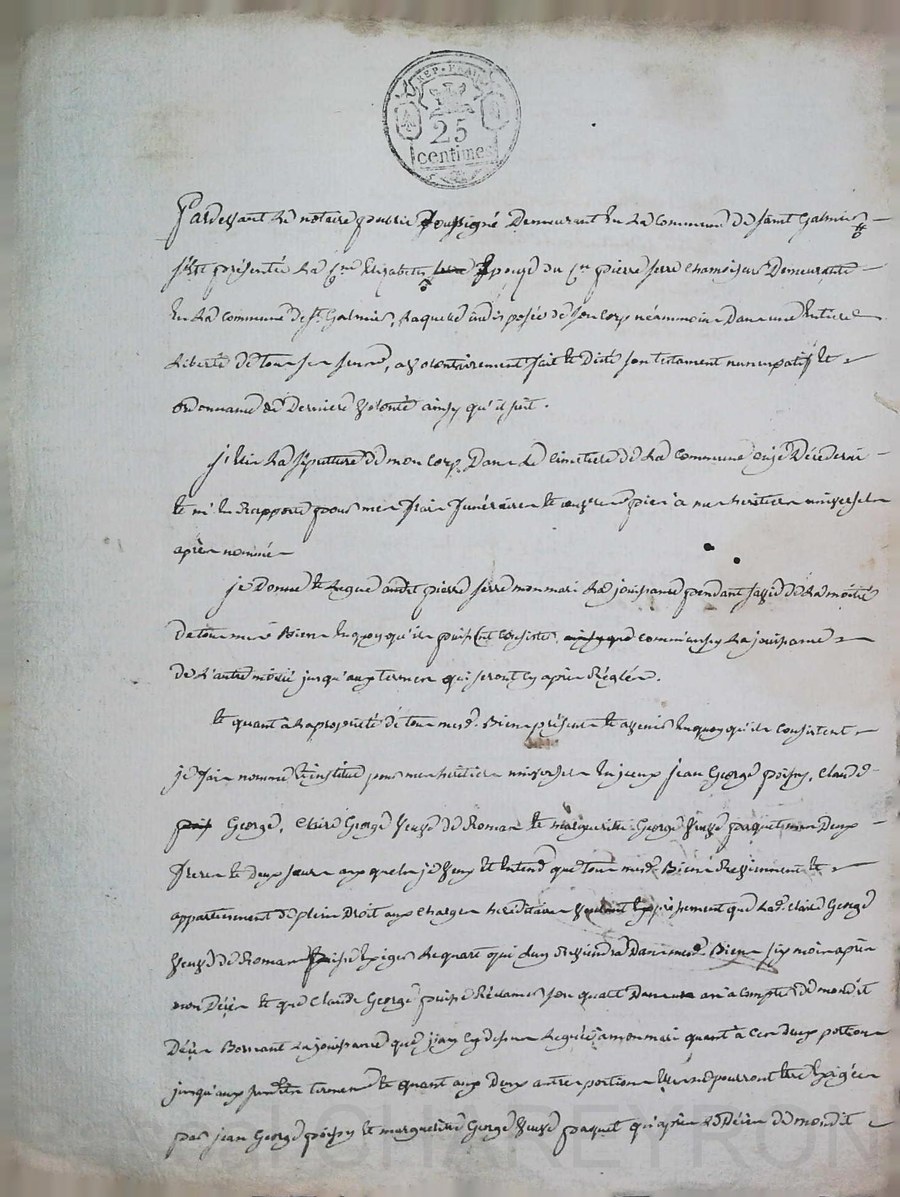 REP. FRA.
25
centimes
Pardevant Le notaire public soussigné Demeurant En La Commune de saint Galmier
s'est présentée La C.ne Elizabeth Epouse du C.en pierre serre chamoiseur Demeurante
En La commune de S.t Galmier, Laquelle indisposée de son Corp néammoins Dans une Entiere
Liberté de tous ses sens, a volontairement fait et Dicté son testament nuncupatif et
ordonnance de Derniere volonté ainsy qu'il suit.
j'Elis La sepulture de mon Corp Dans Le Cimetiere de La Commune ou je Décederai
et m'En Rapporte pour mes frais funéraires et œuvres pies à mes heritiers universels
après nommés
je Donne et Legue audit pierre serre mon mari La jouissance pendant sa vie de La moitié
de tous mes Biens En quoy qu'ils puissent Consister, comm'aussy La jouissance
de L'autre moitié jusqu'aux termes qui seront cy après Réglés.
Et quant à La proprieté de tous mesd. Biens présents et avenir En quoy qu'ils Consistent
je fais nomme et institue pour mes heritiers universels En jceux jean George poisson, Claude
George, Claire George veuve de Roman et marguerite George veuve paquet mes Deux
freres et deux sœurs auxquels je veux et Entend que tous mesd. Biens Reviennent et
appartiennent de plein Droit aux charges hereditaires voulant Expressement que Lad. Claire George
veuve de Roman puisse Exiger Le quart qui Luy Reviendra Dans mesd. Biens six mois après
mon Décès et que Claude George puisse Réclamer son quart Dans un an à compter de mondit
Décès Bornant La jouissance que j'ay cy dessus Leguée à mon mari quant à ces deux portions
jusqu'aux susdits termes et quant aux Deux autres portions Elles ne pourront Etre Exigées
par jean George poisson et marguerite George veuve paquet qu'après Le Décès de mondit
CHAREYRON